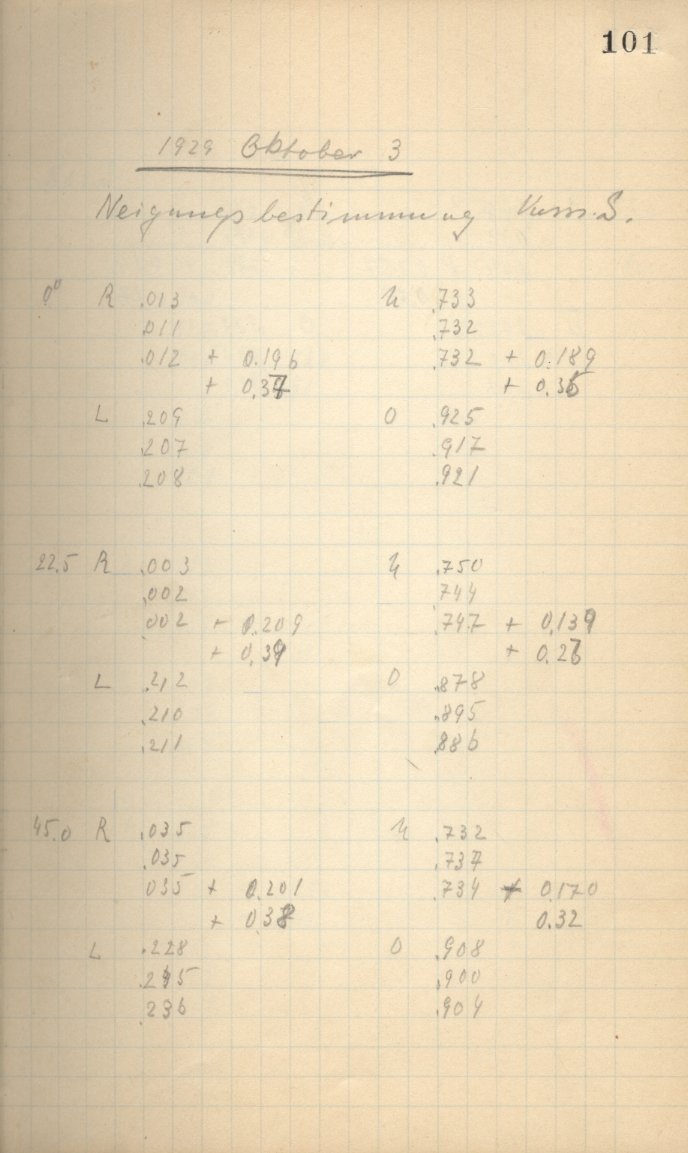 101
1929 Oktober 3
Neigungsbestimmung
0° R .013 U .733
.011 .732
.012 + 0.196 .732 + 0.189
+ 0.37 + 0.35
L .209 O .925
.207 .917
.208 .921
22.5 R .003 U .750
.002 744
002 + 0.209 .747 + 0.139
+ 0.39 + 0.26
L .212 O .878
.210 .895
.211 .886
45.0 R .035 U .732
.035 .737
035 + 0.201 .734 + 0.170
+ 0.38 0.32
L .228 O .908
.245 .900
.236 .904